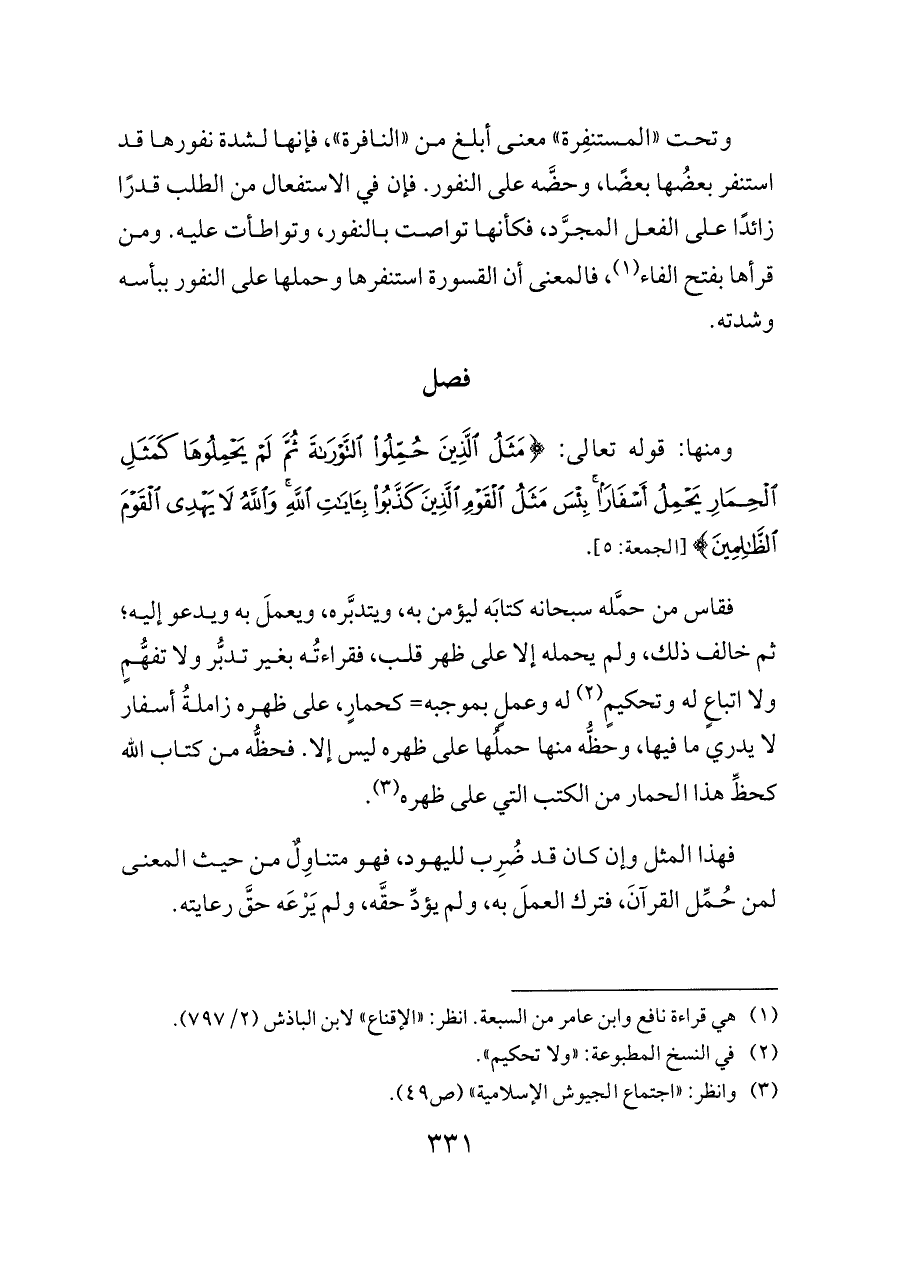 وتحت «المستنفِرة» معنى أبلغ من «النافرة»، فإنها لشدة نفورها قد
استنفر بعضُها بعضًا، وحضَّه على النفور. فإن في الاستفعال من الطلب قدرًا
زائدًا على الفعل المجرَّد، فكأنها تواصت بالنفور، وتواطأت عليه. ومن
قرأها بفتح الفاء(١)، فالمعنى أن القسورة استنفرها وحملها على النفور ببأسه
وشدته.
فصل
ومنها: قوله تعالى: ﴿مَثَلُ ٱلَّذِينَ حُمِّلُوا۟ ٱلتَّوْرَىٰةَ ثُمَّ لَمْ يَحْمِلُوهَا كَمَثَلِ
ٱلْحِمَارِ يَحْمِلُ أَسْفَارًۢا ۚ بِئْسَ مَثَلُ ٱلْقَوْمِ ٱلَّذِينَ كَذَّبُوا۟ بِـَٔايَـٰتِ ٱللَّهِ ۚ وَٱللَّهُ لَا يَهْدِى ٱلْقَوْمَ
ٱلظَّـٰلِمِينَ﴾ [الجمعة: ٥].
فقاس من حمَّله سبحانه كتابَه ليؤمن به، ويتدبَّره، ويعملَ به ويدعو إليه؛
ثم خالف ذلك، ولم يحمله إلا على ظهر قلب، فقراءتُه بغير تدبُّر ولا تفهُّمٍ
ولا اتباعٍ له وتحكيمٍ(٢) له وعملٍ بموجبه= كحمارٍ، على ظهره زاملةُ أسفار
لا يدري ما فيها، وحظُّه منها حملُها على ظهره ليس إلا. فحظُّه من كتاب الله
كحظِّ هذا الحمار من الكتب التي على ظهره(٣).
فهذا المثل وإن كان قد ضُرِب لليهود، فهو متناوِلٌ من حيث المعنى
لمن حُمِّل القرآنَ، فترك العملَ به، ولم يؤدِّ حقَّه، ولم يَرْعَه حقَّ رعايته.
(١) هي قراءة نافع وابن عامر من السبعة. انظر: «الإقناع» لابن الباذش (٢/ ٧٩٧).
(٢) في النسخ المطبوعة: «ولا تحكيم».
(٣) وانظر: «اجتماع الجيوش الإسلامية» (ص٤٩).
٣٣١